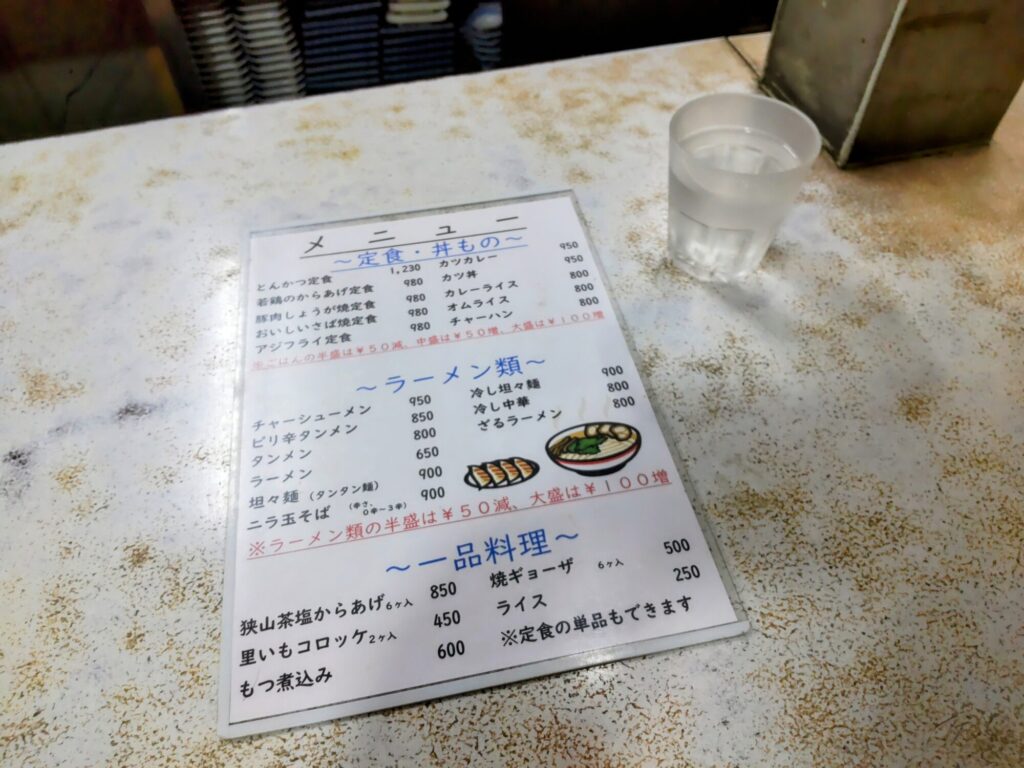 メニュー
～定食・丼もの～
とんかつ定食 1,230 カツカレー 950
若鶏のからあげ定食 980 カツ丼 950
豚肉しょうが焼定食 980 カレーライス 800
おいしいさば焼定食 980 オムライス 800
アジフライ定食 980 チャーハン 800
※ごはんの半盛は￥５０減、中盛は￥５０増、大盛は￥１００増
～ラーメン類～
チャーシューメン 950 冷し坦々麺 900
ピリ辛タンメン 850 冷し中華 800
タンメン 800 ざるラーメン 800
ラーメン 650
坦々麺（タンタン麺） 900
（辛さ
0辛～3辛）
ニラ玉そば 900
※ラーメン類の半盛は￥５０減、大盛は￥１００増
～一品料理～
狭山茶塩からあげ6ヶ入 850 焼ギョーザ 6ヶ入 500
里いもコロッケ2ヶ入 450 ライス 250
もつ煮込み 600 ※定食の単品もできます